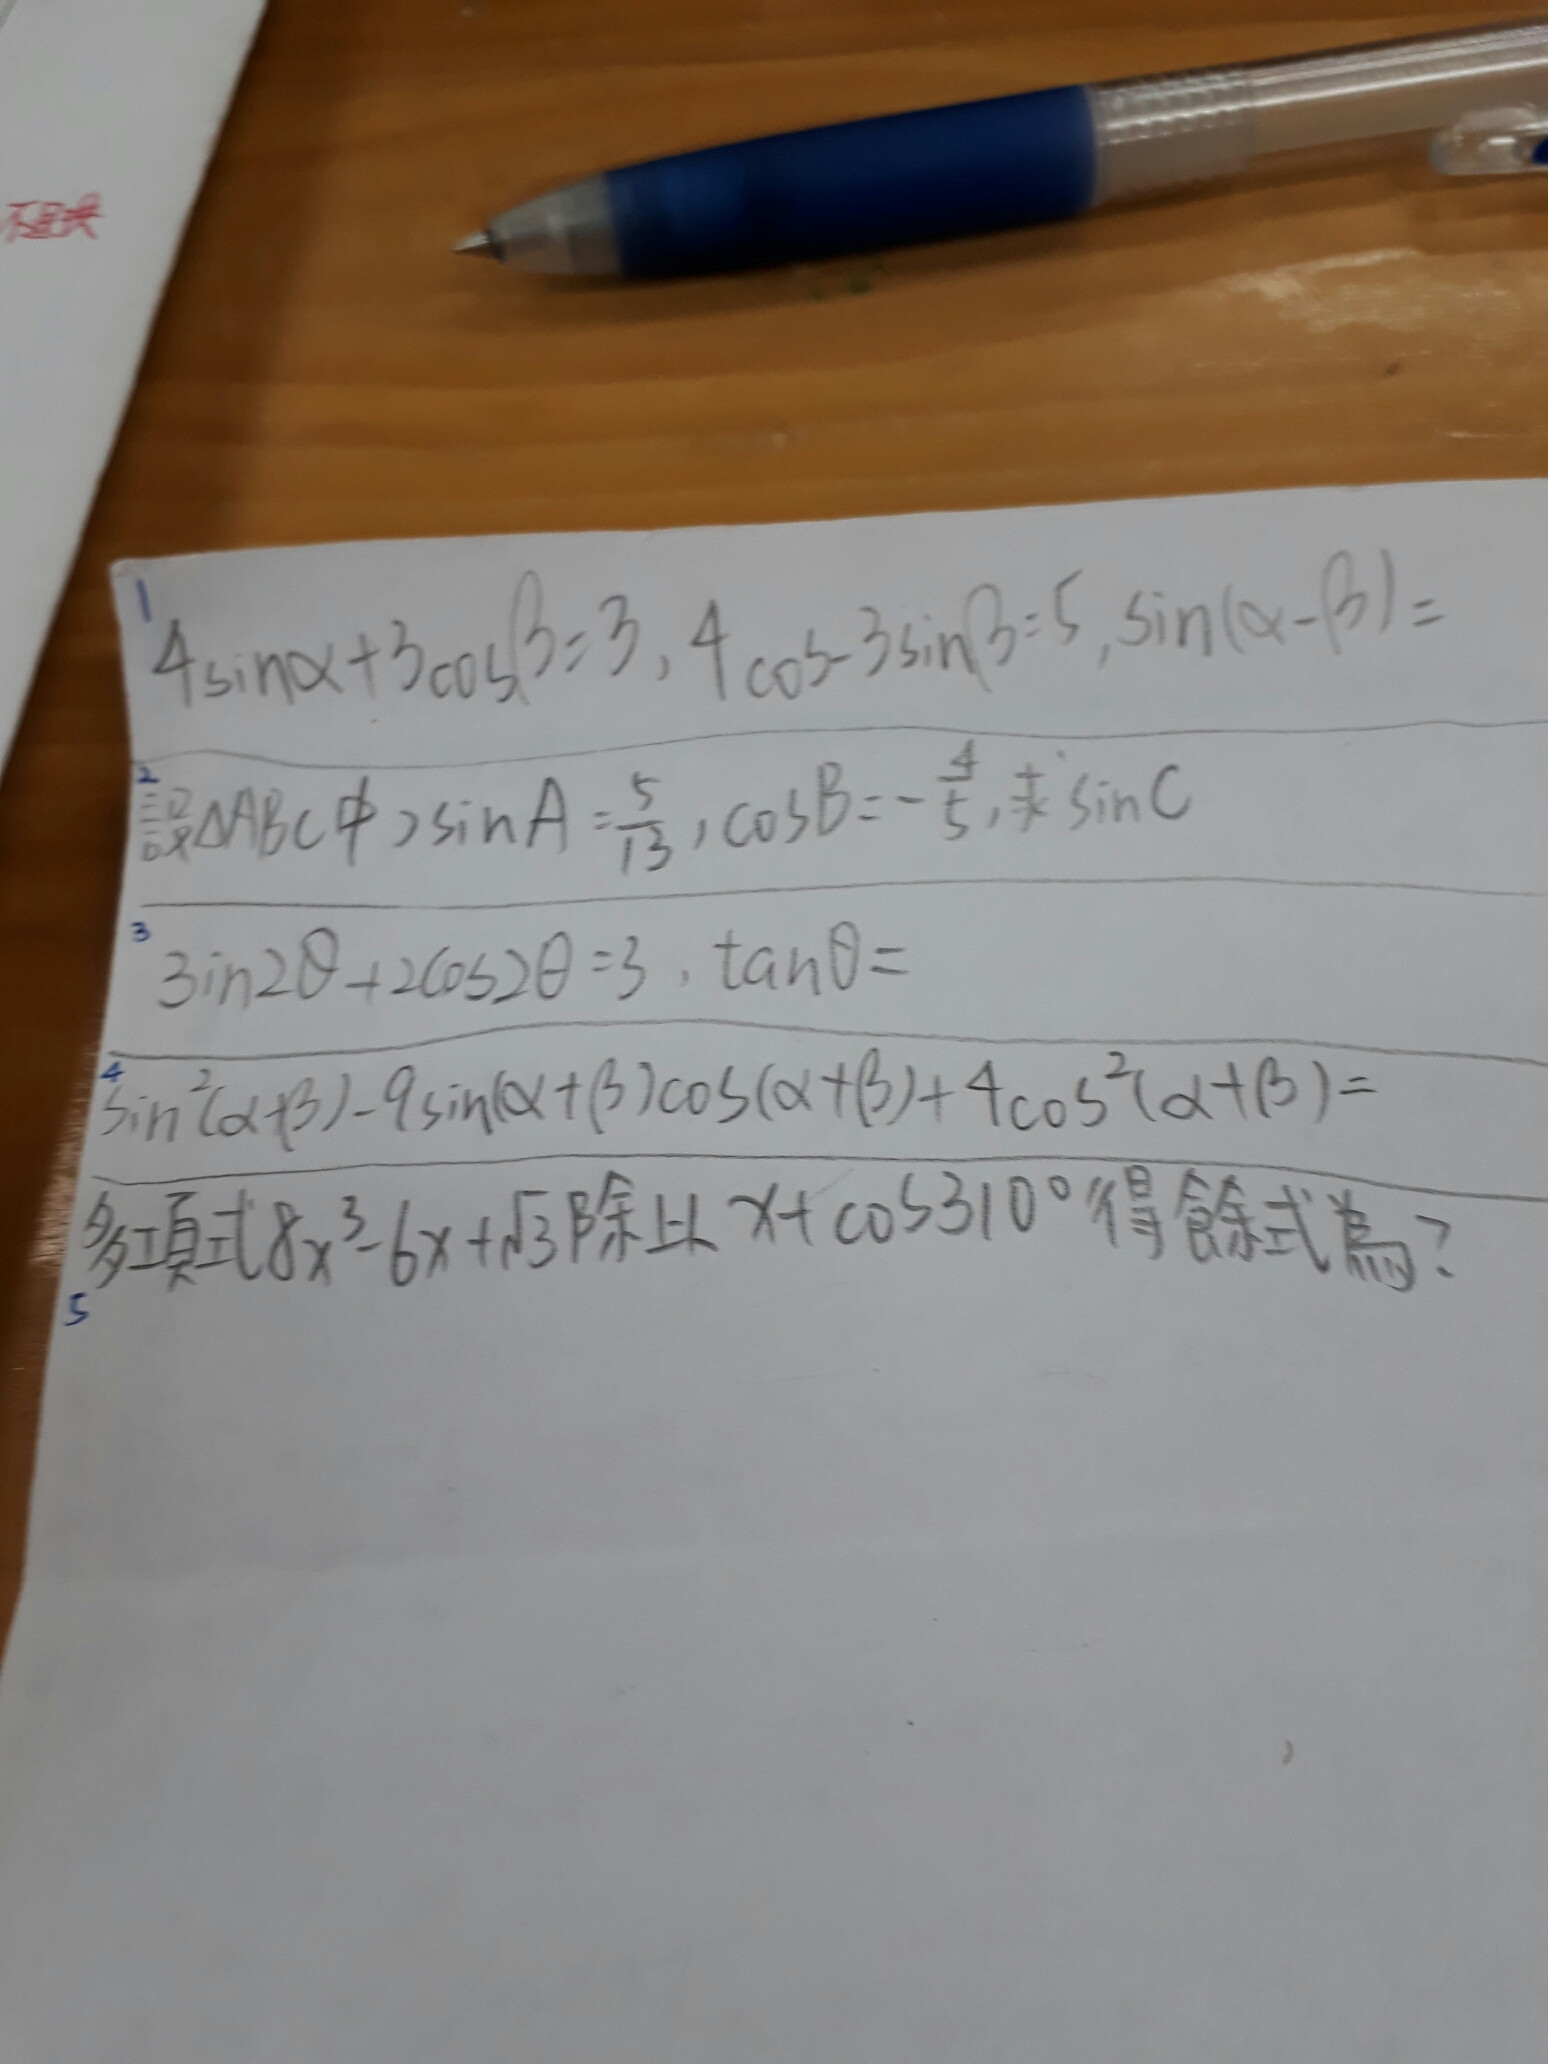 1
4sinα+3cosβ=3,4cos-3sinβ=5,sin(α-β)=
2
設△ABC中,sinA=5/13,cosB=-4/5,求sinC
3
3in2θ+2cos2θ=3,tanθ=
4
sin²(α+β)-9sin(α+β)cos(α+β)+4cos²(α+β)=
多項式8x³-6x+√3除以x+cos310°得餘式為?
5